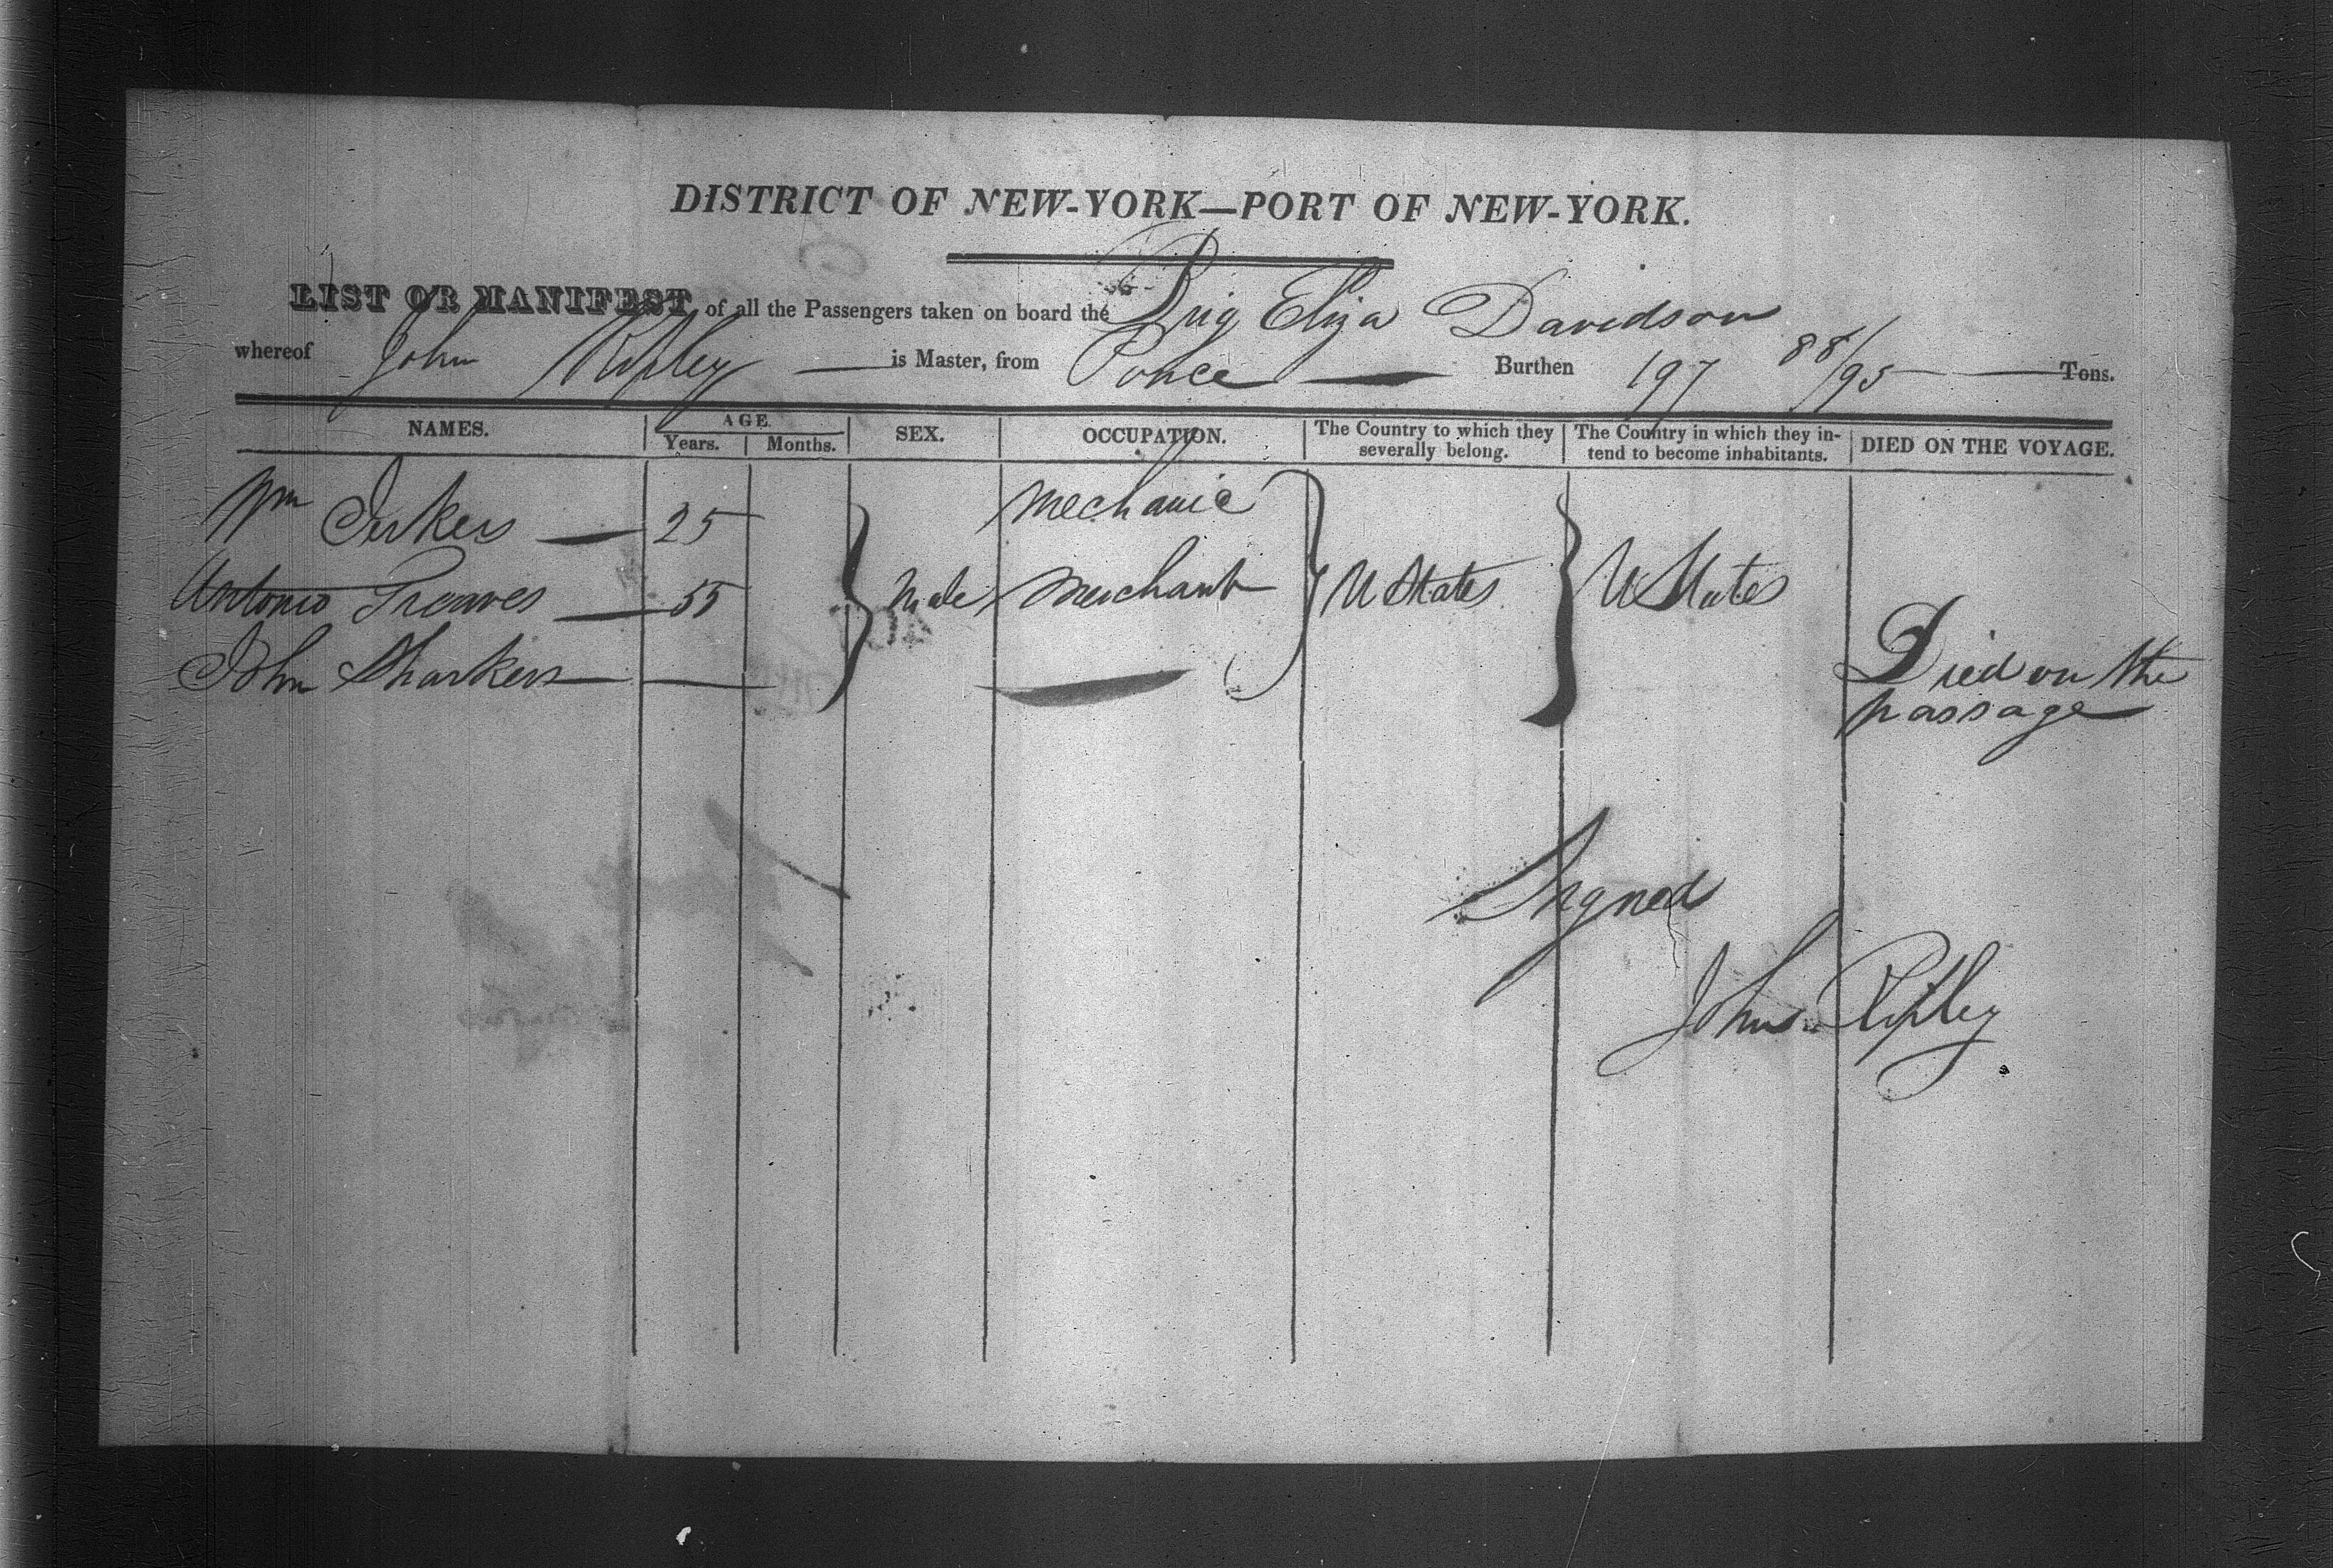 DISTRICT OF NEW-YORK—PORT OF NEW-YORK.
LIST OR MANIFEST of all the Passengers taken on board the Brig Eliza Davidson
whereof John Ripley is Master, from Ponce Burthen 197 88/95 Tons.
NAMES. AGE. SEX. OCCUPATION. The Country to which they severally belong. The Country in which they in-tend to become inhabitants. DIED ON THE VOYAGE.
Years. Months.
Wm 25 Mechanic
Antonio 55 Male Merchant U States U States
John Died on the
passage
Signed
John Ripley